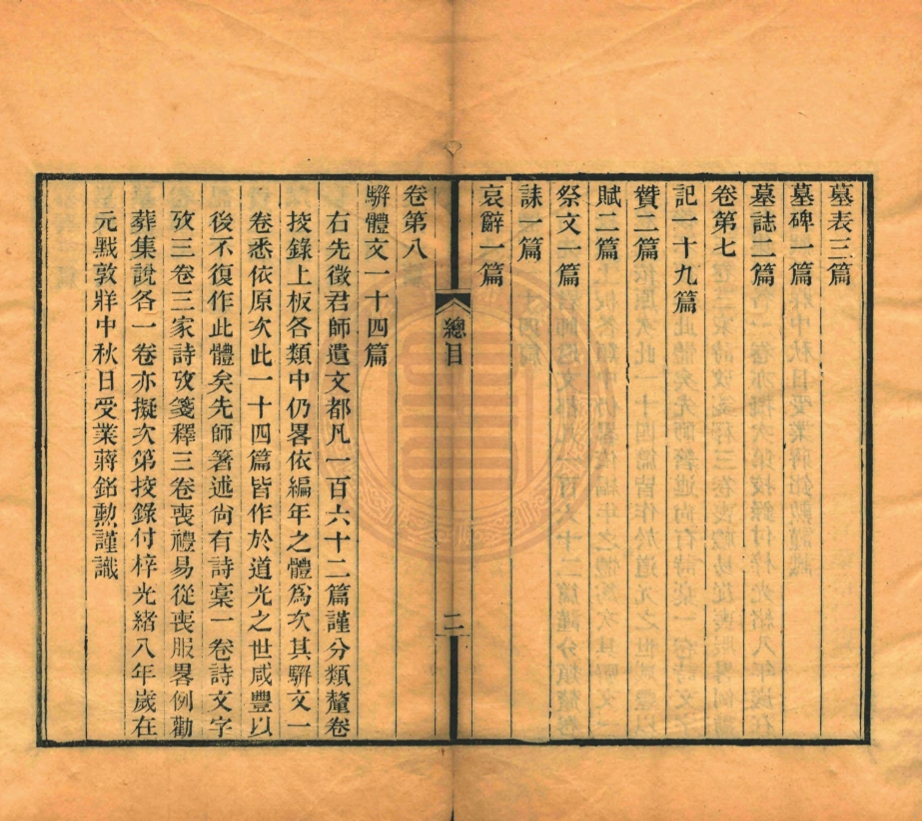 墓表三篇
墓碑一篇
墓誌二篇
卷第七
記一十九篇
贊二篇
賦二篇
祭文一篇
誄一篇
哀辭一篇
總目
二
卷第八
駢體文一十四篇
右先徵君師遺文都凡一百六十二篇謹分類釐卷
挍錄上板各類中仍畧依編年之體爲次其駢文一
卷悉依原次此一十四篇皆作於道光之世咸豐以
後不復作此體矣先師箸述尙有詩稾一卷詩文字
攷三卷三家詩攷箋釋三卷喪禮易從喪服畧例勸
葬集說各一卷亦擬次第挍錄付梓光緒八年歲在
元黓敦牂中秋日受業蔣銘勲謹識